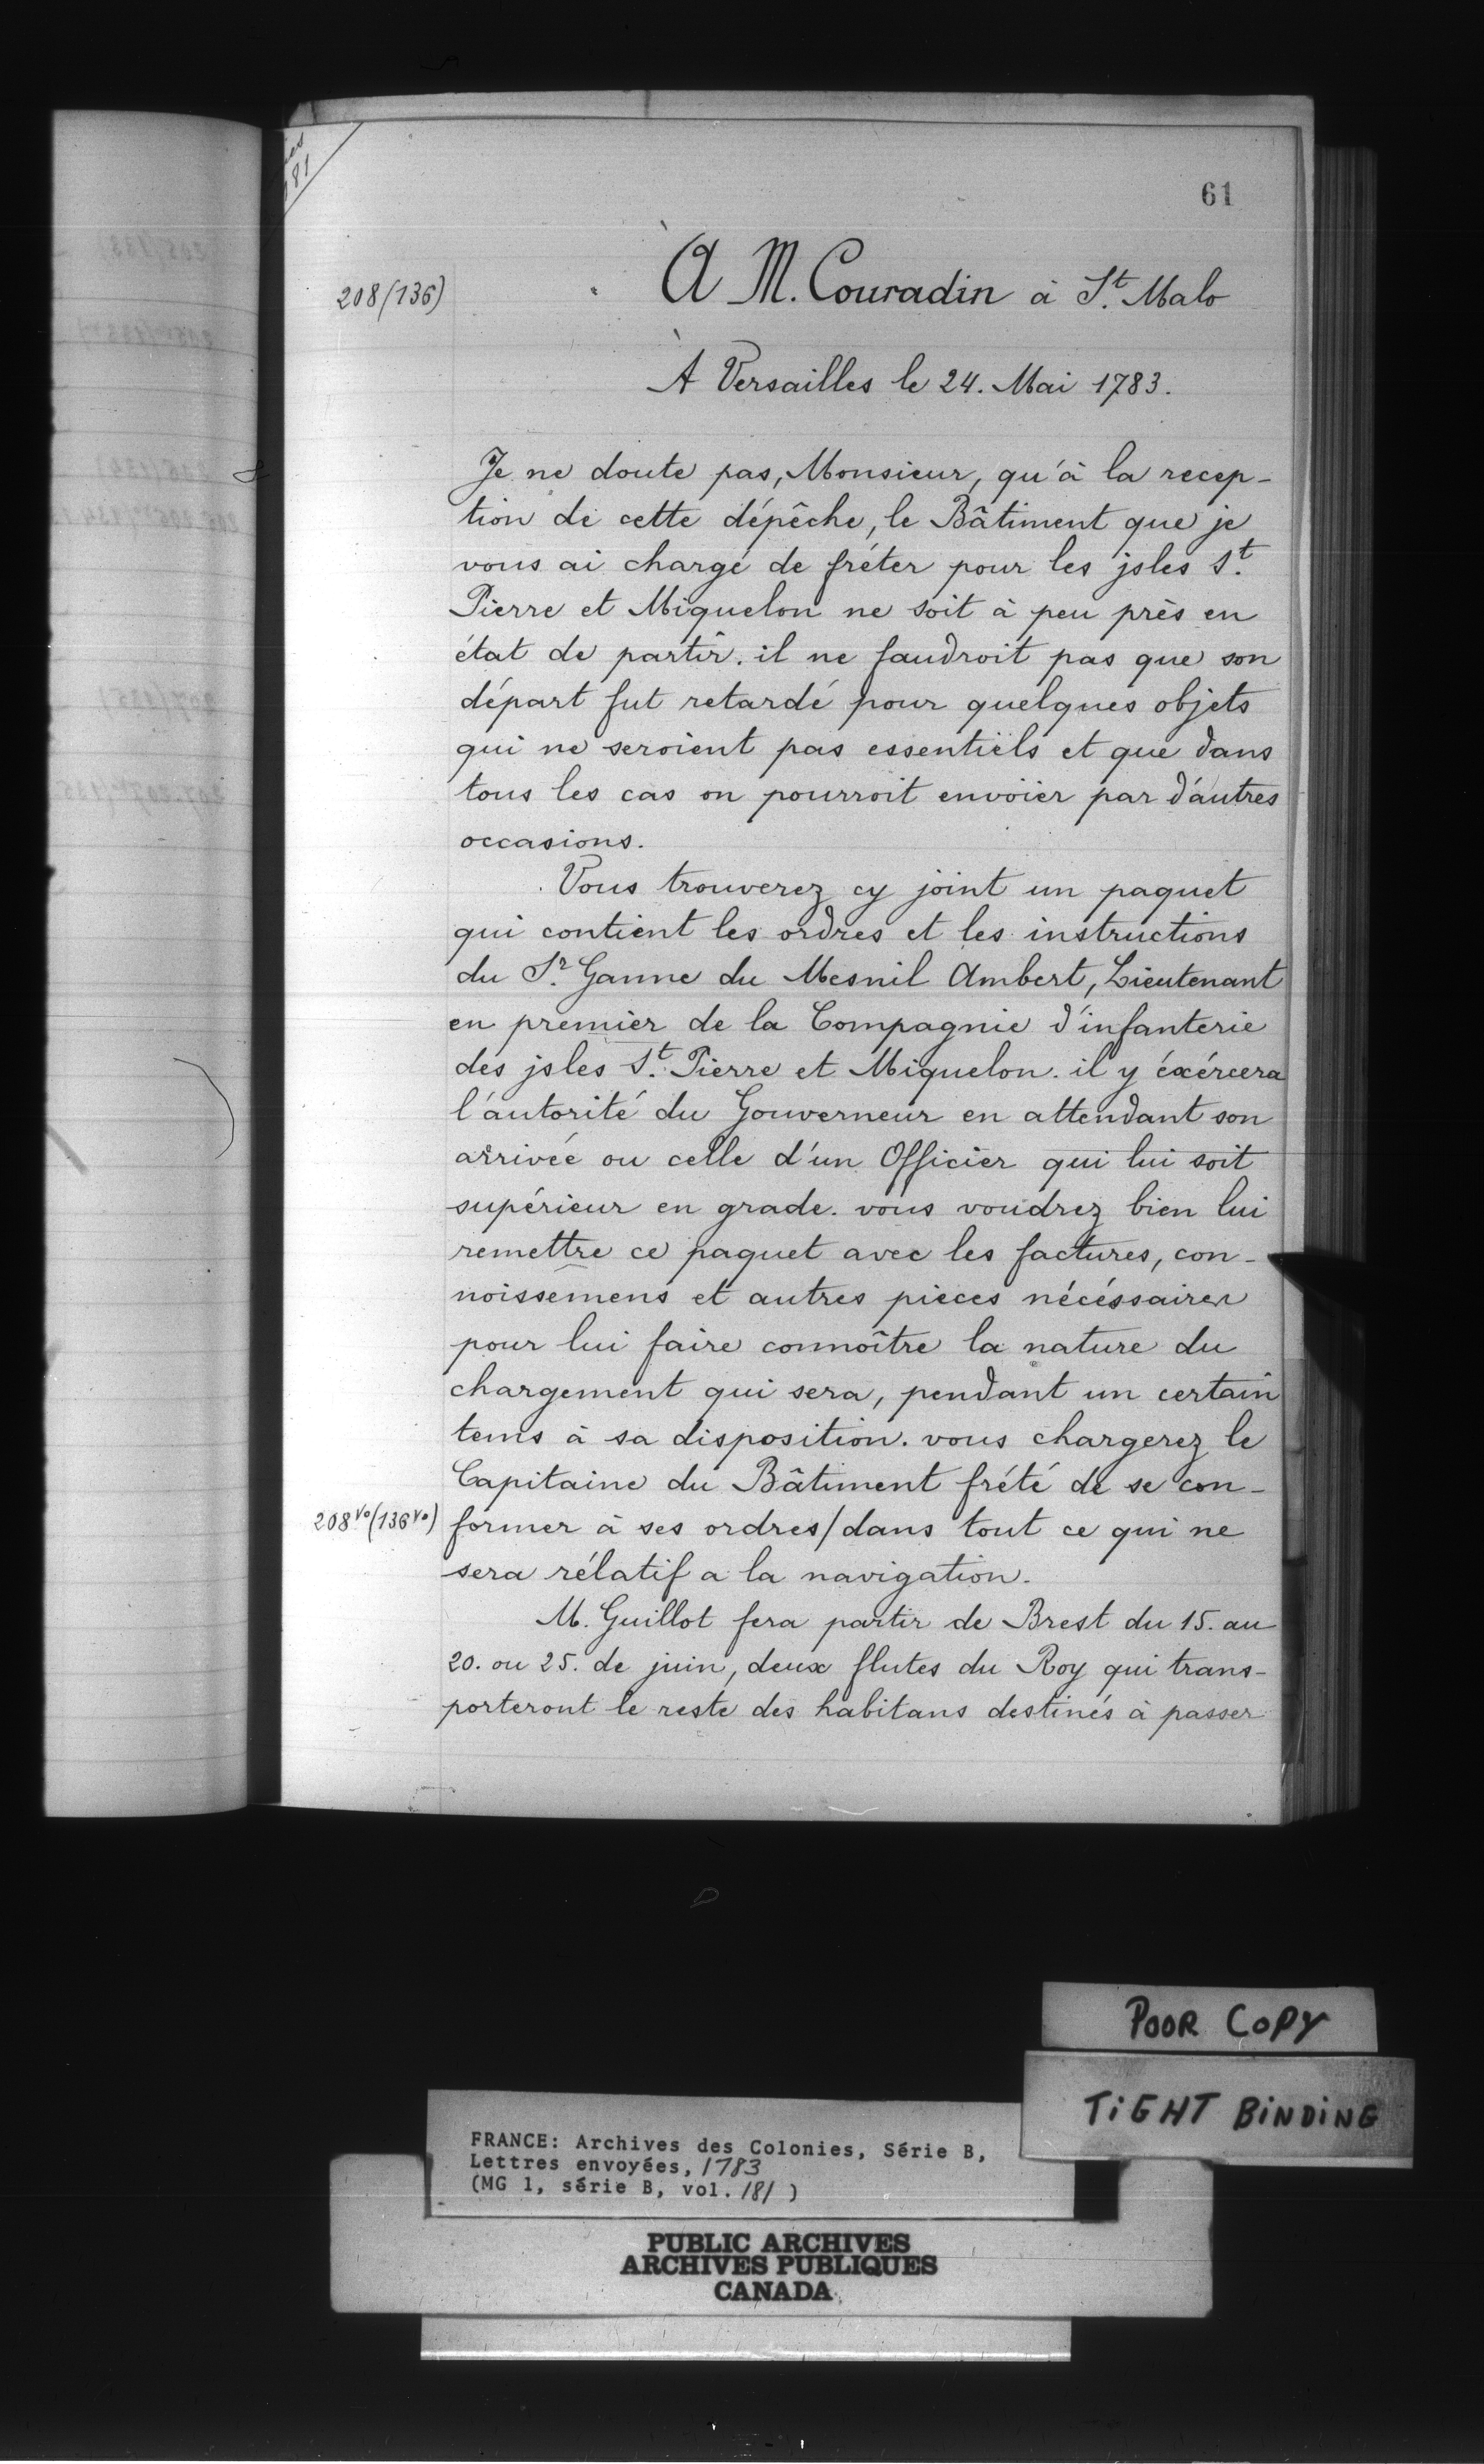 61
208 (136)
À M. Couradin à St. Malo
À Versailles le 24. Mai 1783.
Je ne doute pas, Monsieur, qu'à la recep-
tion de cette dépêche, le Bâtiment que je
vous ai chargé de fréter pour les jsles St.
Pierre et Miquelon ne soit à peu près en
état de partir. il ne faudroit pas que son
départ fut retardé pour quelques objets
qui ne seroient pas essentiels et que dans
tous les cas on pourroit envoïer par d'autres
occasions.
Vous trouverez cy joint un paquet
qui contient les ordres et les instructions
du Sr. Ganne du Mesnil Ambert, Lieutenant
en premier de la Compagnie d'infanterie
des jsles St. Pierre et Miquelon. il y éxércera
l'autorité du Gouverneur en attendant son
arrivée ou celle d'un Officier qui lui soit
supérieur en grade. vous voudrez bien lui
remettre ce paquet avec les factures, con-
noissemens et autres pieces nécéssaires
pour lui faire connoître la nature du
chargement qui sera, pendant un certain
tems à sa disposition. vous chargerez le
Capitaine du Bâtiment frété de se con-
208vo (136vo) former à ses ordres/dans tout ce qui ne
sera rélatif a la navigation.
M. Guillot fera partir de Brest du 15. au
20. ou 25. de juin, deux flutes du Roy qui trans-
porteront le reste des habitans destinés à passer
POOR COPY
TIGHT BINDING
FRANCE: Archives des Colonies, Série B,
Lettres envoyées, 1783
(MG 1, série B, vol. 181 )
PUBLIC ARCHIVES
ARCHIVES PUBLIQUES
CANADA